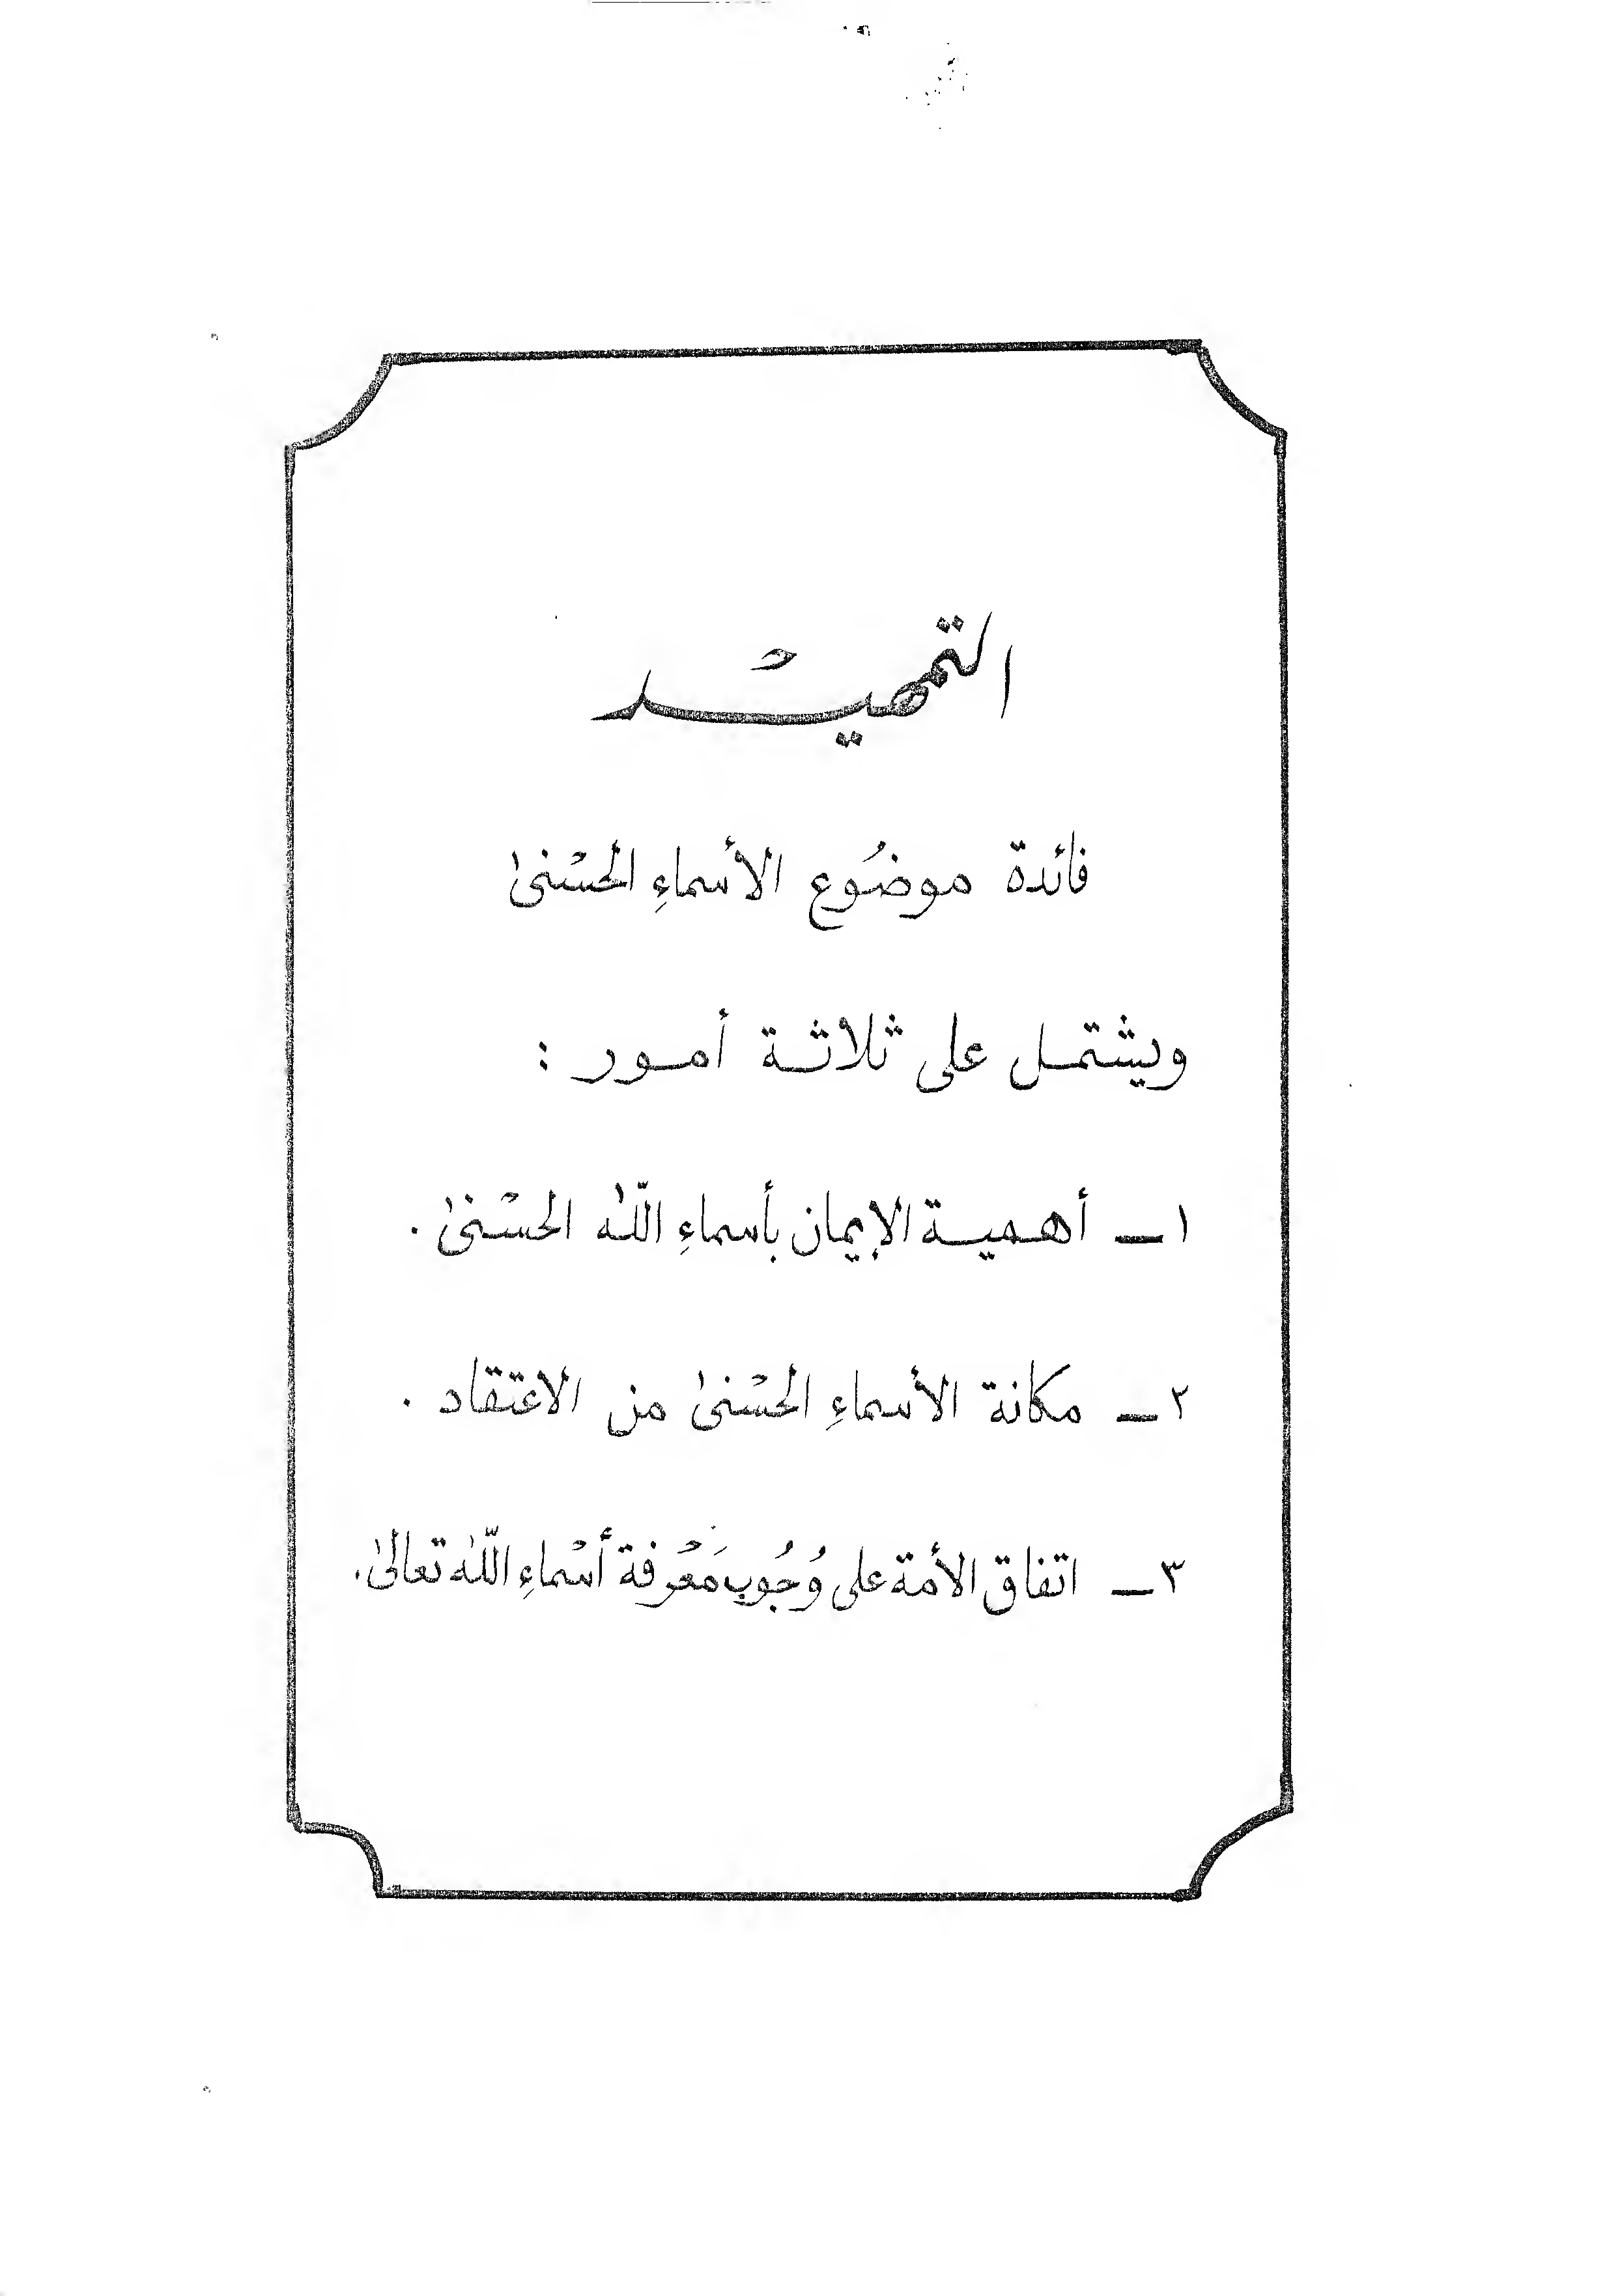 التمهيد
فائدة موضُوع الأسماءِ الحسْنىٰ
ويشتمل على ثلاثة أمور :
١ ـ أهمية الإيمان بأسماءِ اللّٰه الحسْنىٰ .
٢ ـ مكانة الأسماءِ الحسْنىٰ من الاعتقاد .
٣ ـ اتفاق الأمة على وُجُوب مَعْرفة أسْماءِ اللّٰه تعالىٰ.